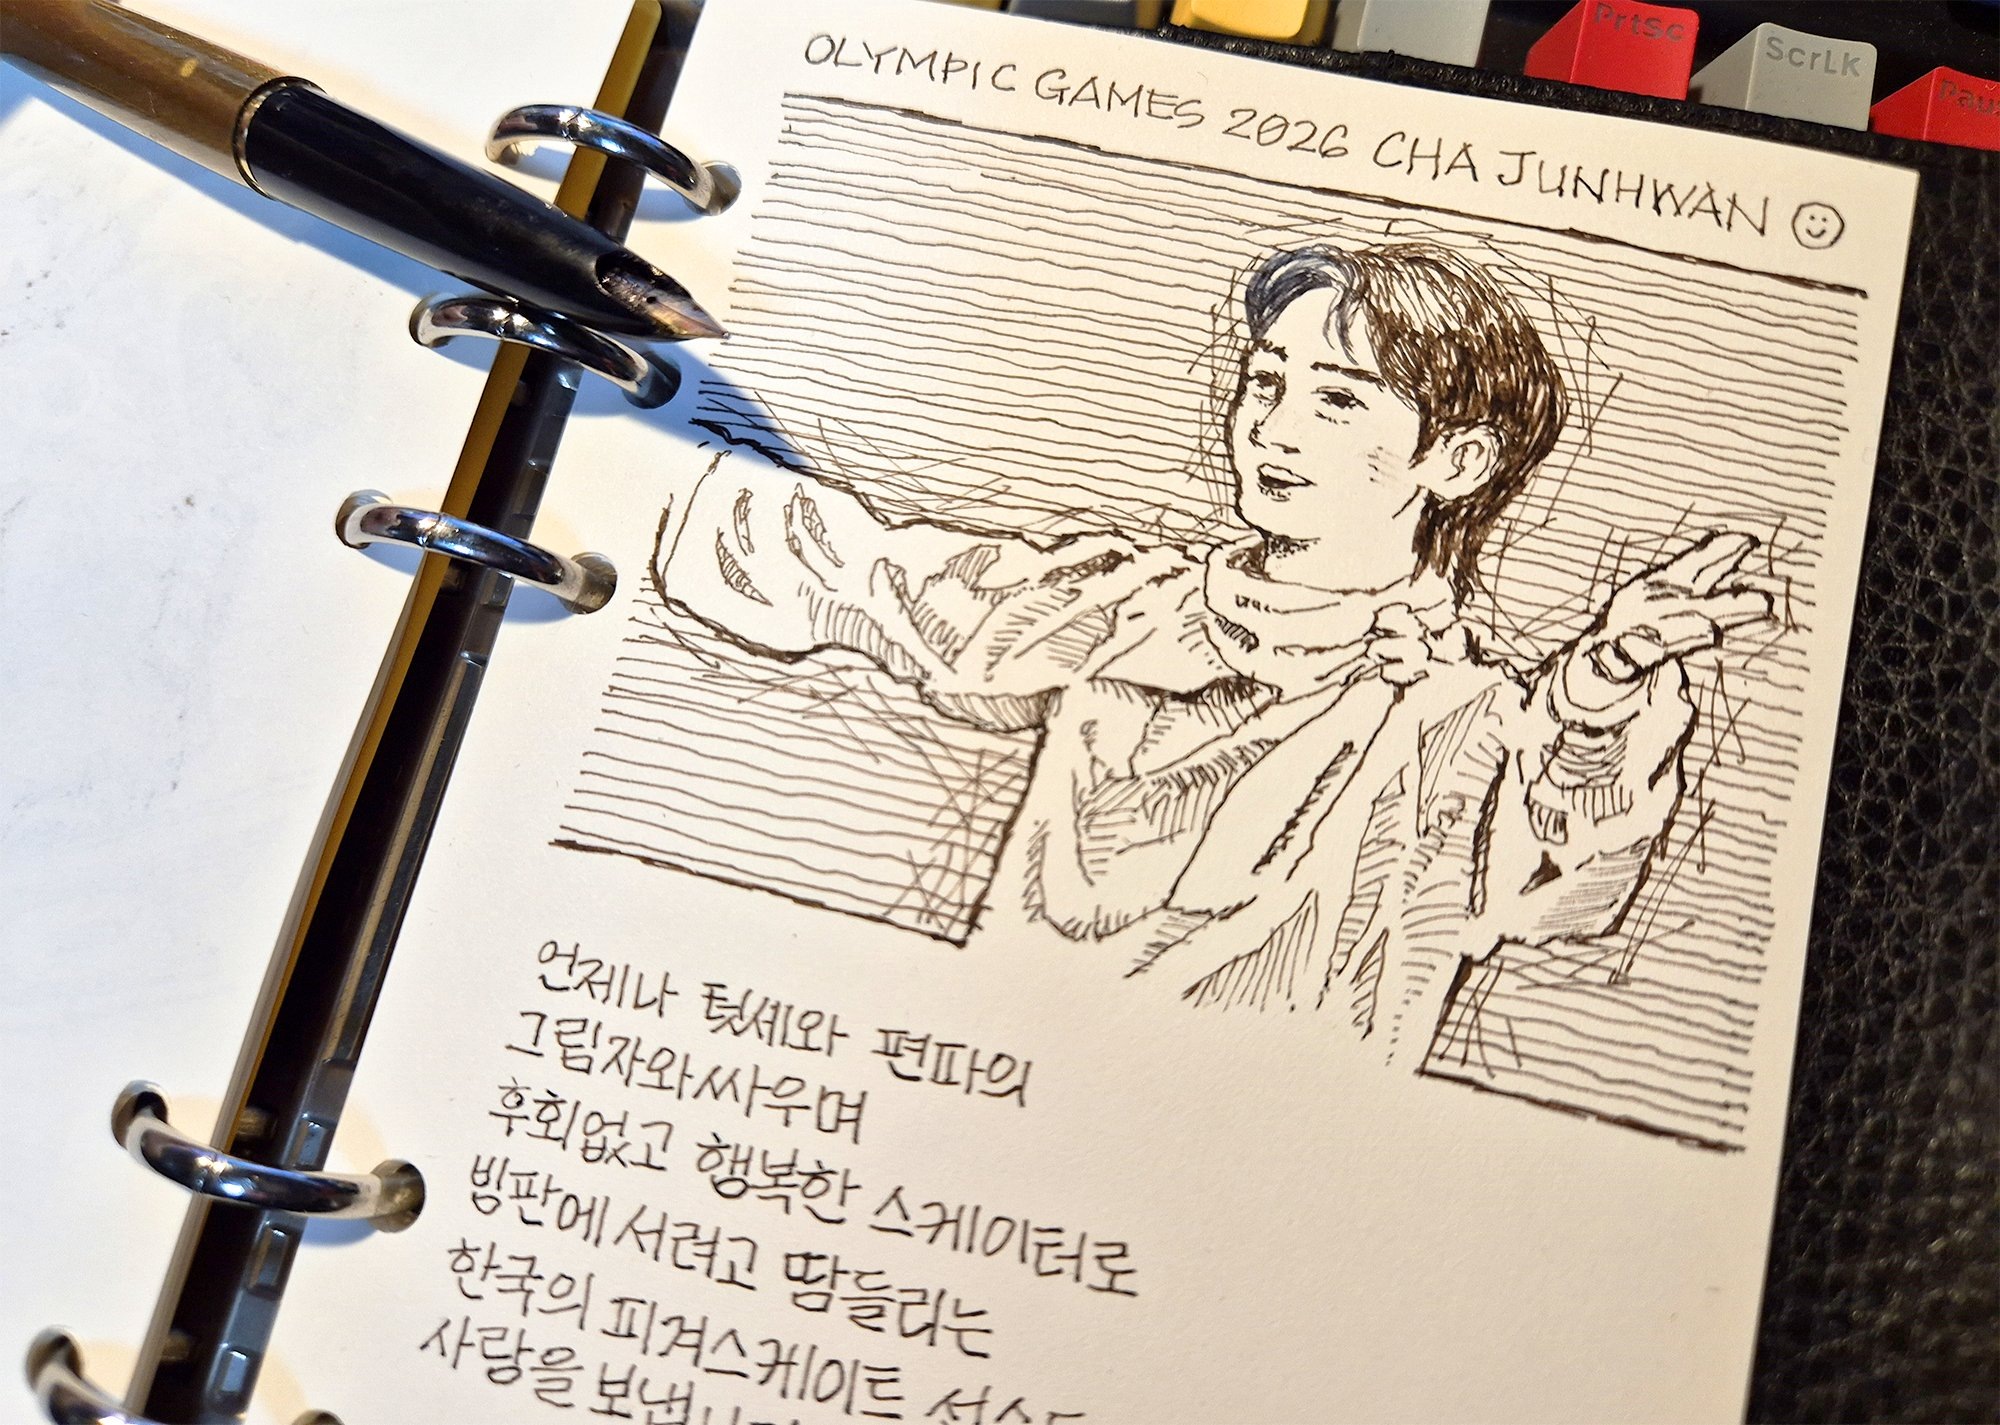 PrtSc
ScrLK
OLYMPIC GAMES 2026 CHA JUNHWAN
언제나 텃세와 편파의
그림자와 싸우며
후회없고 행복한 스케이터로
빙판에 서려고 땀들리는
한국의 피겨스케이트
사랑을